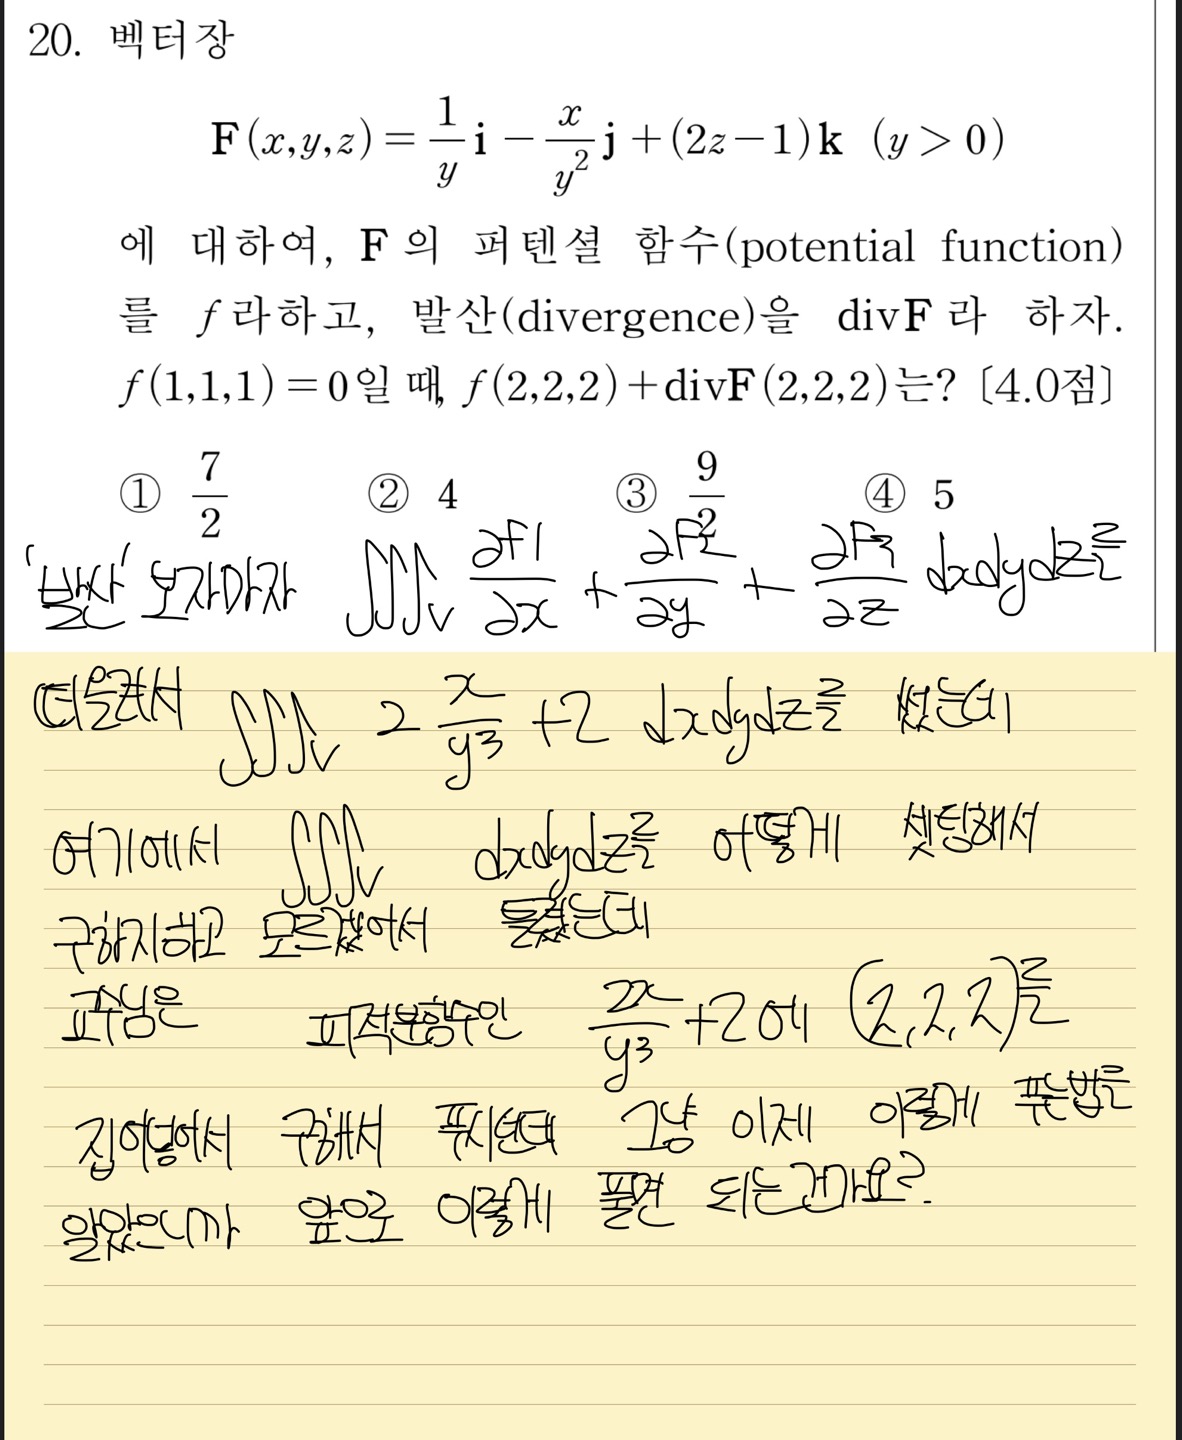 20. 벡터장
F(x,y,z) = 1/y i − x/y² j + (2z−1)k (y > 0)
에 대하여, F의 퍼텐셜 함수(potential function)
를 f라하고, 발산(divergence)을 divF라 하자.
f(1,1,1) = 0일 때, f(2,2,2)+divF(2,2,2)는? [4.0점]
① 7/2 ② 4 ③ 9/2 ④ 5
'발산' 보자마자 ∭v ∂F1/∂x + ∂F2/∂y + ∂F3/∂z dxdydz를
떠올려서 ∭v 2 x/y³ +2 dxdydz를 썼는데
여기에서 ∭v dxdydz를 어떻게 셋팅해서
구하지하고 모르겠어서 틀렸는데
교수님은 피적분함수인 2x/y³ +2에 (2,2,2)를
집어넣어서 구해서 푸시던데 그냥 이제 이렇게 푸는법을
알았으니까 앞으로 이렇게 풀면 되는건가요?